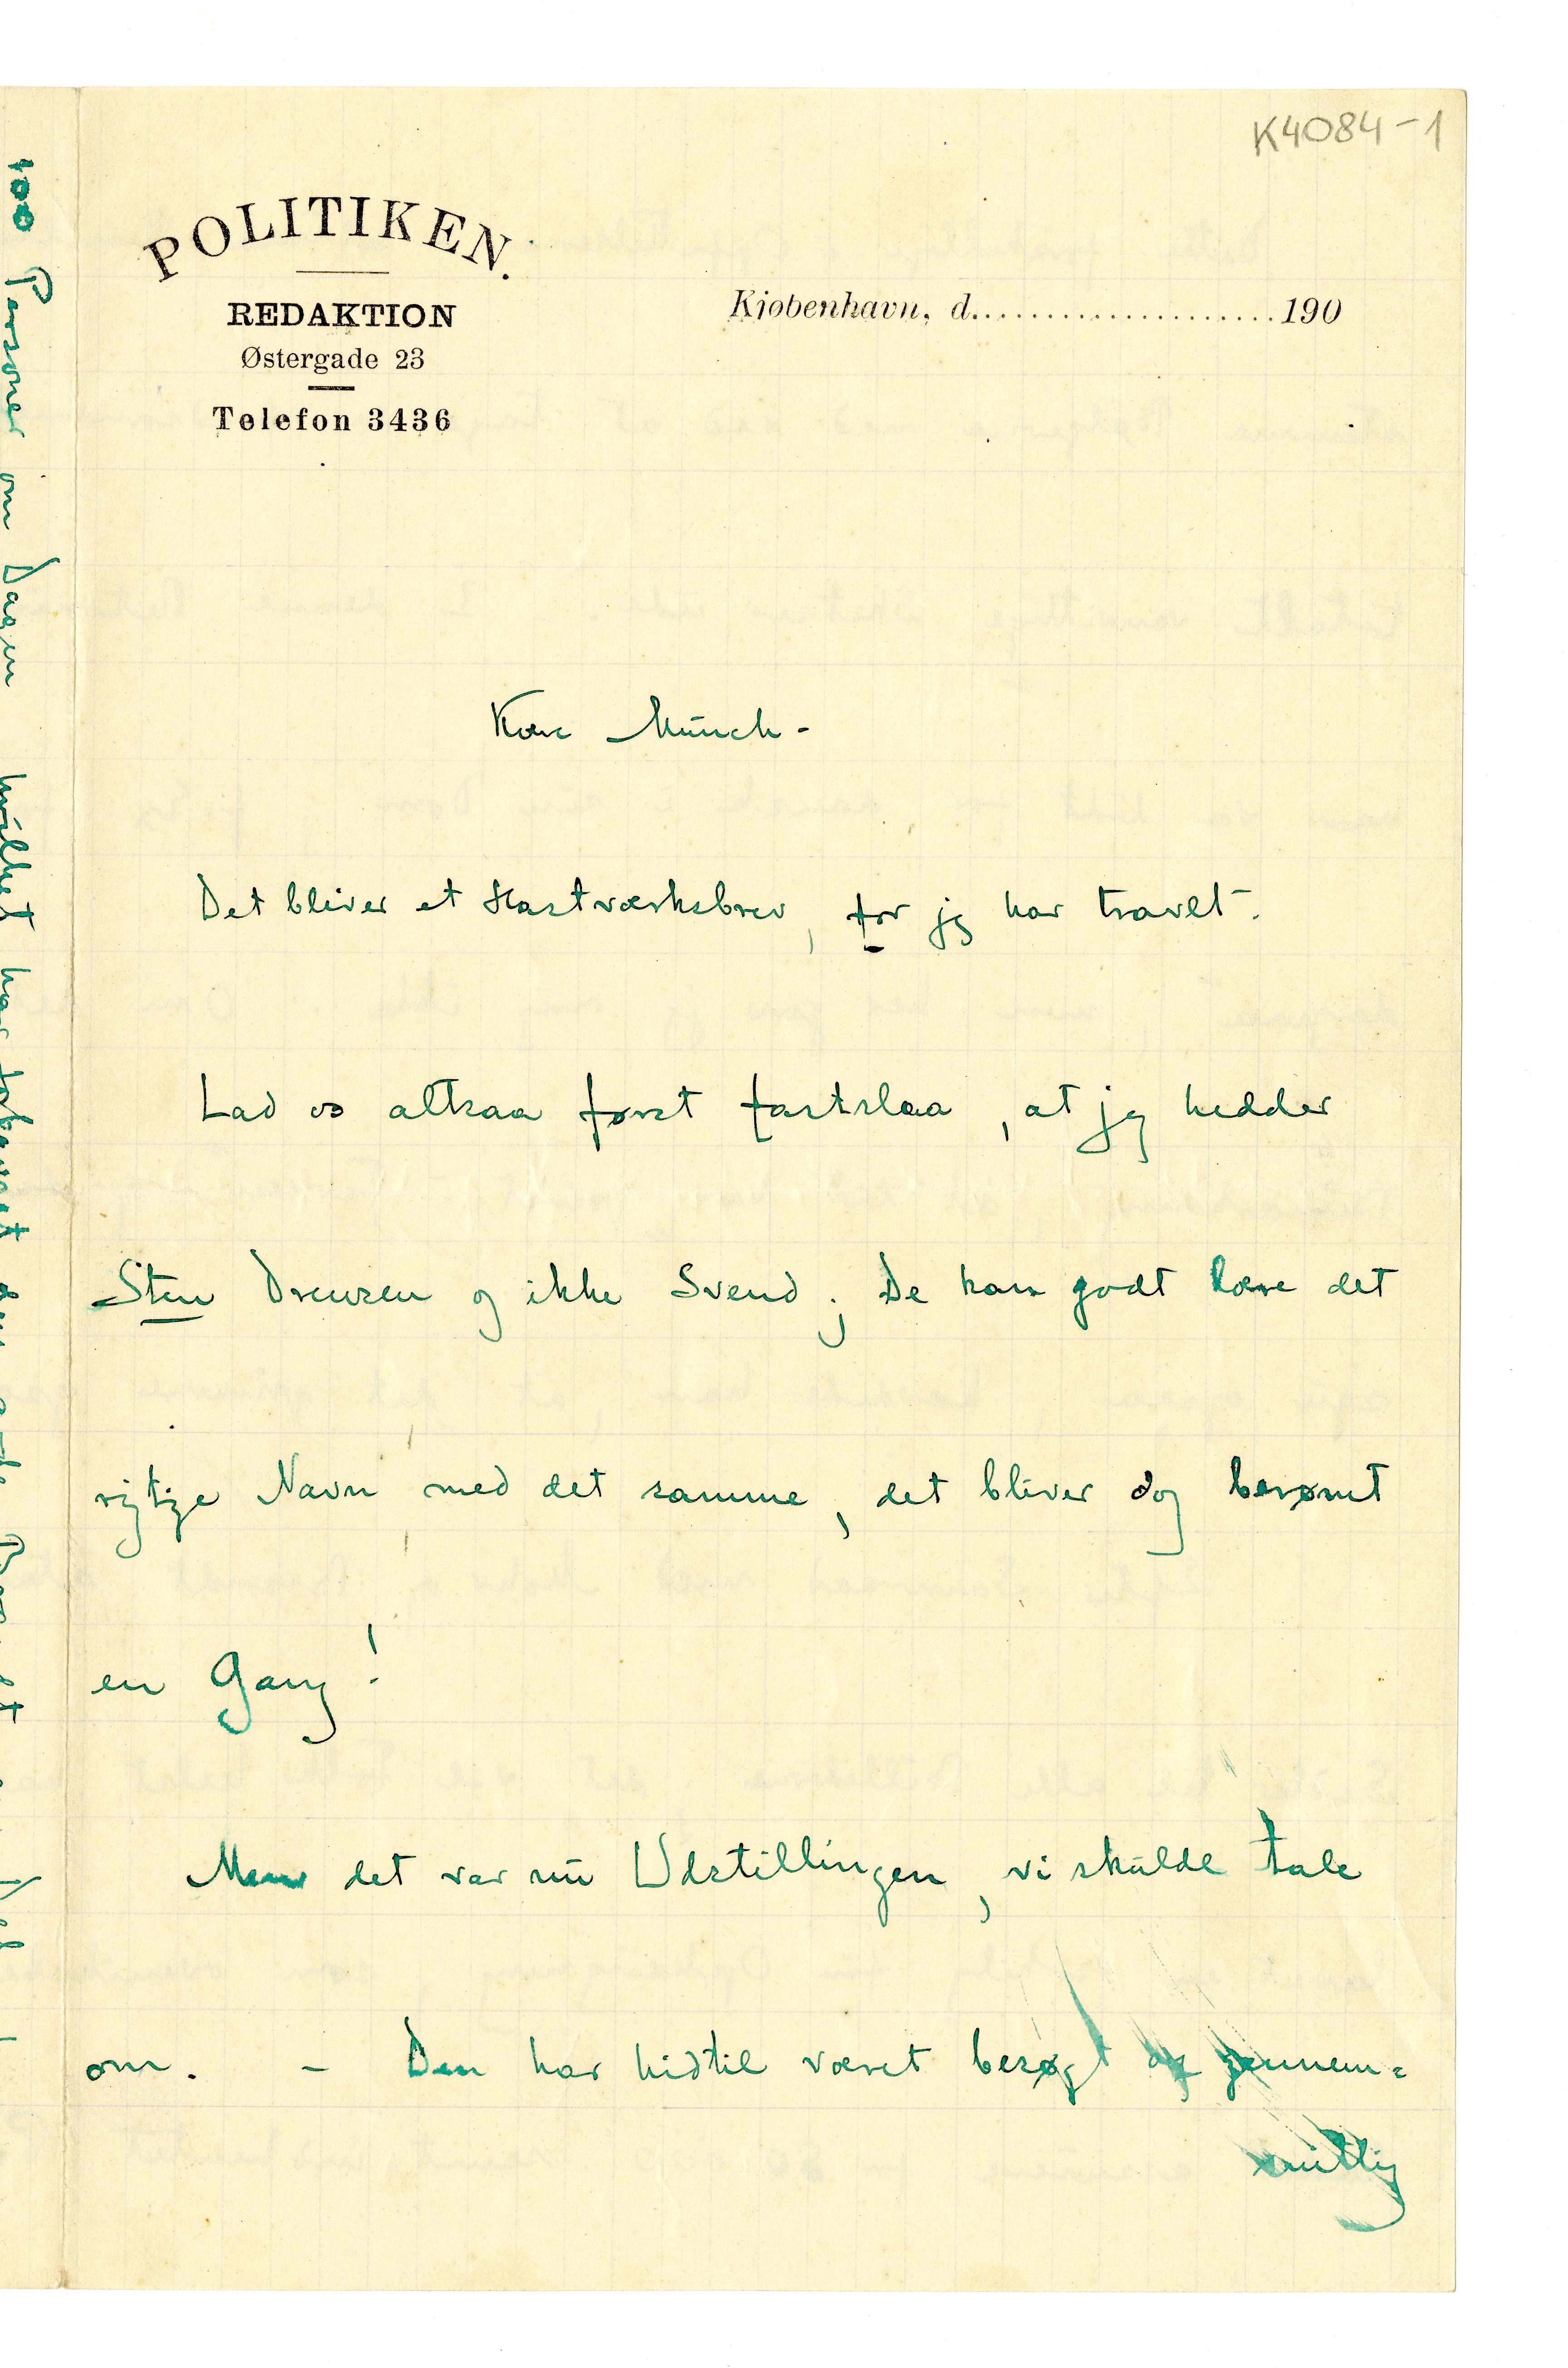 K4084-1
POLITIKEN.
REDAKTION
Østergade 23
Telefon 3436
Kjøbenhavn, d.....................190
Kære Münch -
Det bliver et Hastværksbrev, for jeg har travlt.
Lad os altsaa først fastslaa, at jeg hedder
Sten Drewsen og ikke Svend; De kan godt lære det
rigtige Navn med det samme, det bliver dog berømt
en Gang!
Men det var nu Udstillingen, vi skulde tale
om. - Den har hidtil været besøgt af gennem=
snitlig
100 Personer om Dagen hvilket har